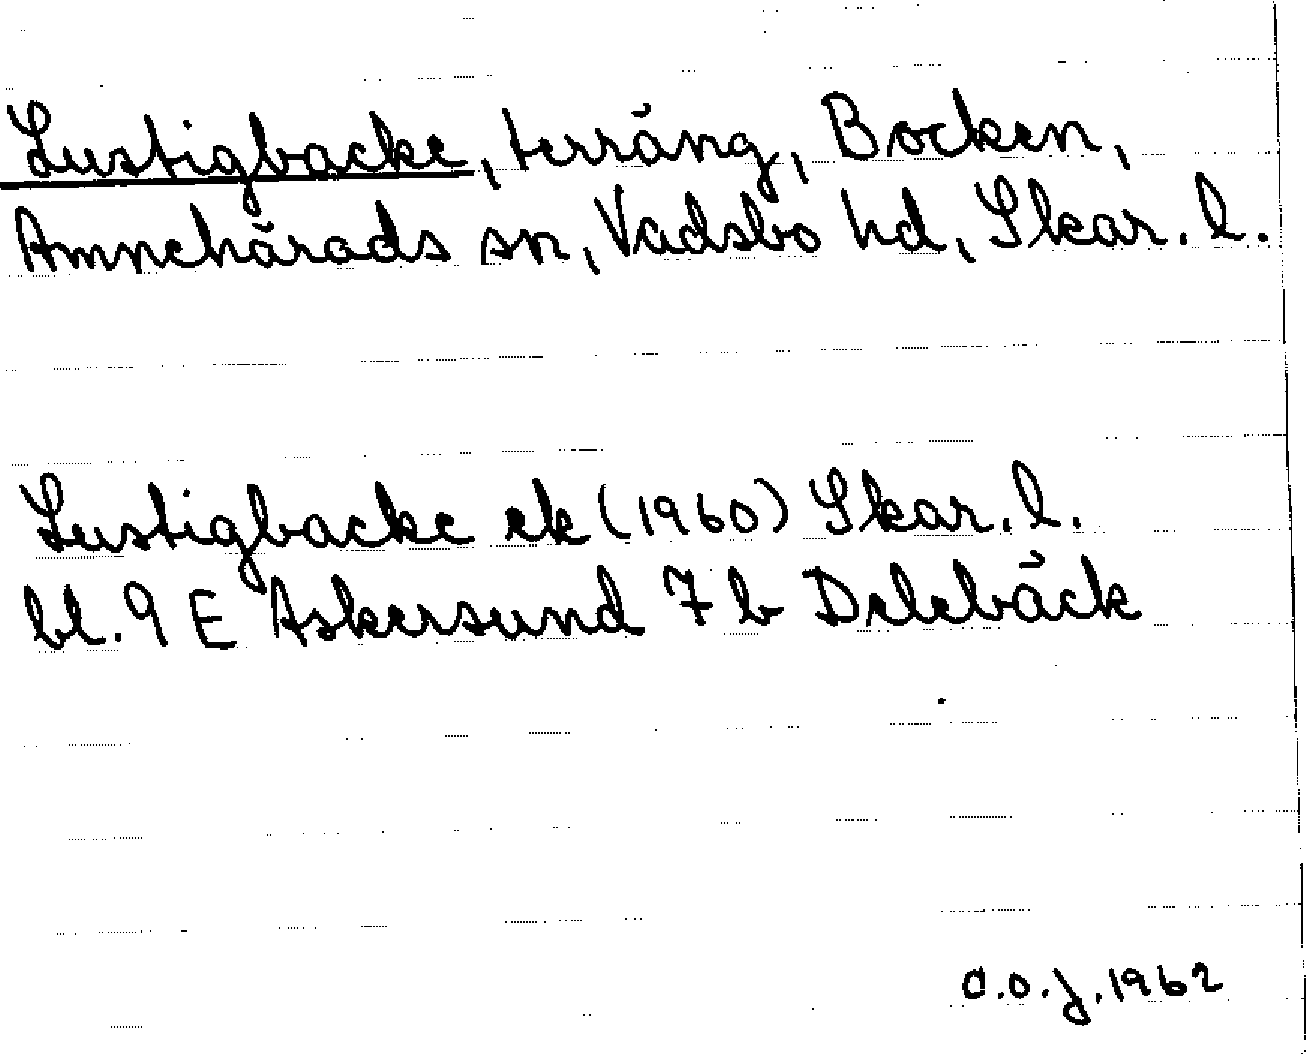 Lustigbacke, terräng, Bocken,
Amnehärads sn, Vadsbo hd, Skar. l.
Lustigbacke ek (1960) Skar. l.
bl. 9 E Askersund 7 b Delebäck
O.O.J. 1962